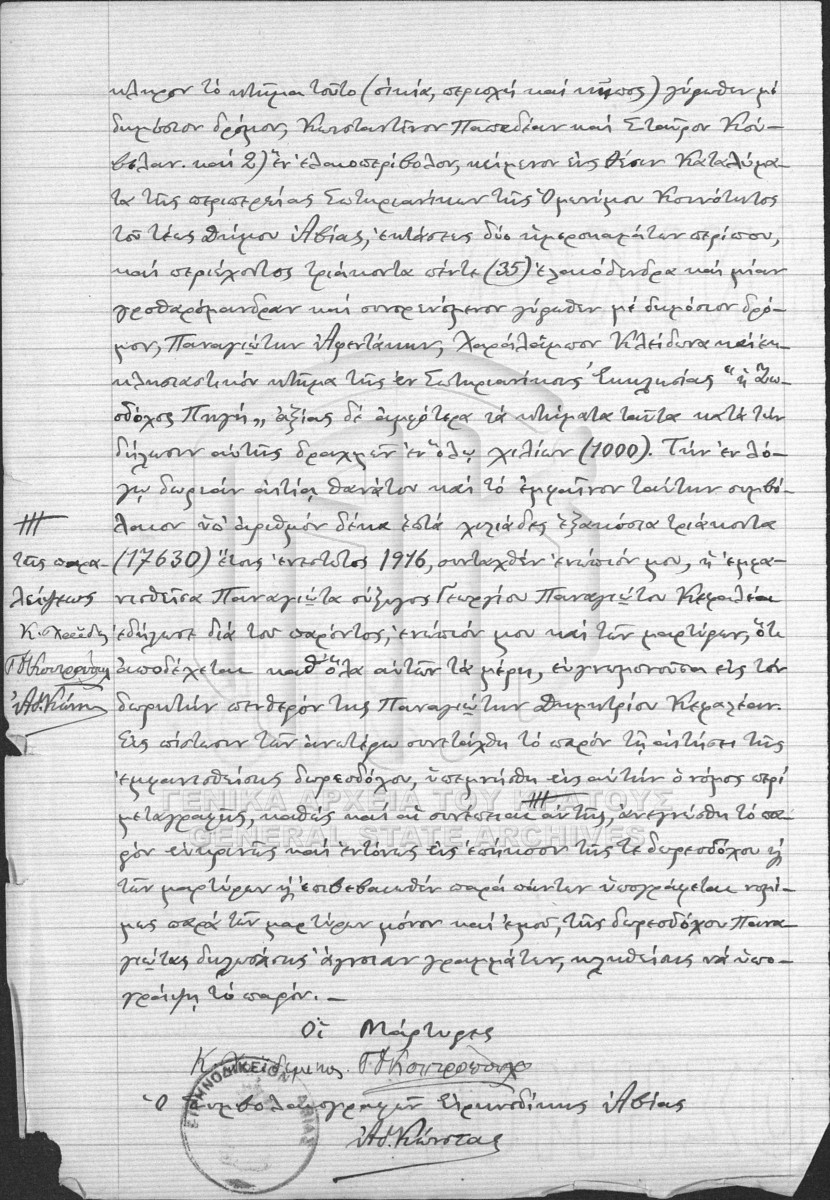 κληρον τὸ κτῆμα τοῦτο (οἰκία, περιοχὴ καὶ κῆπος) γύρωθεν μὲ
δημόσιον δρόμον, Κωνσταντῖνον Παπαδέαν καὶ Σταῦρον Κού-
βελαν. καὶ 2) ἓν ἐλαιοπερίβολον, κείμενον εἰς θέσιν Καταλύμα-
τα τῆς περιφερείας Σωτηριανίκων τῆς ὁμωνύμου Κοινότητος
τοῦ τέως Δήμου Ἀβίας, ἐκτάσεως δύο ἡμεροκαμάτων περίπου,
καὶ περιέχοντος τριάκοντα πέντε (35) ἐλαιόδενδρα καὶ μίαν
καὶ συνορευόμενον γύρωθεν μὲ δημόσιον δρό-
μον, Παναγιώτην Ἀφεντάκην, Χαράλαμπον Κλείδωνα καὶ ἐκ-
κλησιαστικὸν κτῆμα τῆς ἐν Σωτηριανίκοις Ἐκκλησίας "ἡ Ζωο-
δόχος Πηγή„ ἀξίας δὲ ἀμφότερα τὰ κτήματα ταῦτα κατὰ τὴν
δήλωσιν αὐτῆς δραχμῶν ἐν ὅλῳ χιλίων (1000). Τὴν ἐν λό-
γῳ δωρεὰν αἰτίᾳ θανάτου καὶ τὸ ἐμφαῖνον ταύτην συμβό-
λαιον ὑπ' ἀριθμὸν δέκα ἑπτὰ χιλιάδες ἑξακόσια τριάκοντα
(17630) ἔτους ἐνεστῶτος 1916, συνταχθὲν ἐνώπιόν μου, ἡ ἐμφα-
νισθεῖσα Παναγιώτα σύζυγος Γεωργίου Παναγιώτου Κεφαλέα
ἐδήλωσε διὰ τοῦ παρόντος, ἐνώπιόν μου καὶ τῶν μαρτύρων, ὅτι
ἀποδέχεται καθ' ὅλα αὐτῶν τὰ μέρη, εὐγνωμονοῦσα εἰς τὸν
δωρητὴν πενθερόν της Παναγιώτην Δημητρίου Κεφαλέαν.
Εἰς πίστωσιν τῶν ἀνωτέρω συνετάχθη τὸ παρὸν τῇ αἰτήσει τῆς
ἐμφανισθείσης δωρεοδόχου, ὑπεμνήσθη εἰς αὐτὴν ὁ νόμος περὶ
μεταγραφῆς, καθὼς καὶ αἱ συνέπειαι αὐτῆς, ἀνεγνώσθη τὸ πα-
ρὸν εὐκρινῶς καὶ ἐντόνως εἰς ἐπήκοον τῆς τε δωρεοδόχου ἢ
τῶν μαρτύρων ἢ ἐπιβεβαιωθὲν παρὰ πάντων ὑπογράφεται νομί-
μως παρὰ τῶν μαρτύρων μόνον καὶ ἐμοῦ, τῆς δωρεοδόχου Πανα-
γιώτας δηλωσάσης ἄγνοιαν γραμμάτων, κληθείσης νὰ ὑπο-
γράψῃ τὸ παρόν. –
τῆς παρα-
λείψεως
Οἱ Μάρτυρες
Ὁ Συμβολαιογραφῶν Εἰρηνοδίκης Ἀβίας
ΕΙΡΗΝΟΔΙΚΕΙΟΝ ΑΒΙΑΣ
ΓΕΝΙΚΑ ΑΡΧΕΙΑ ΤΟΥ ΚΡΑΤΟΥΣ
GENERAL STATE ARCHIVES